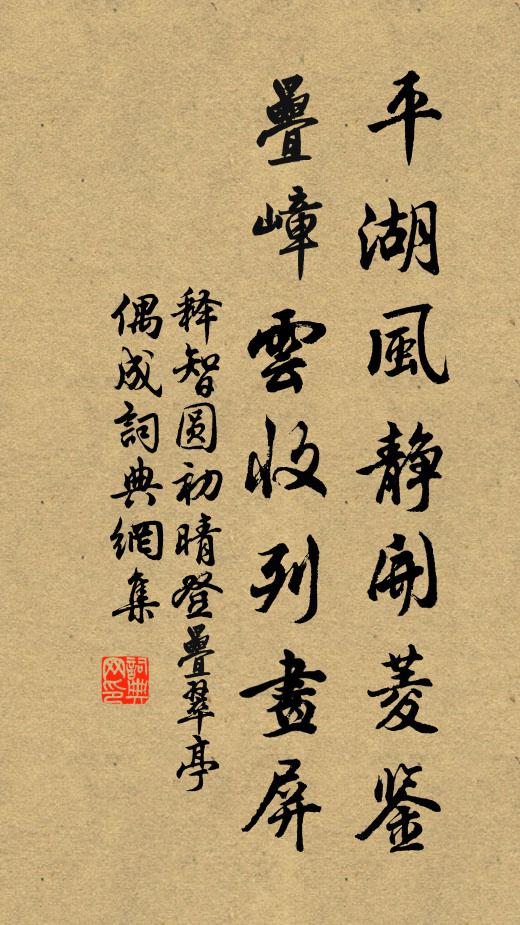 平湖風静開菱鉴
疊嶂雲收列畫屏
释智圆初晴登疊翠亭
偶成詞典網集
詞典網印